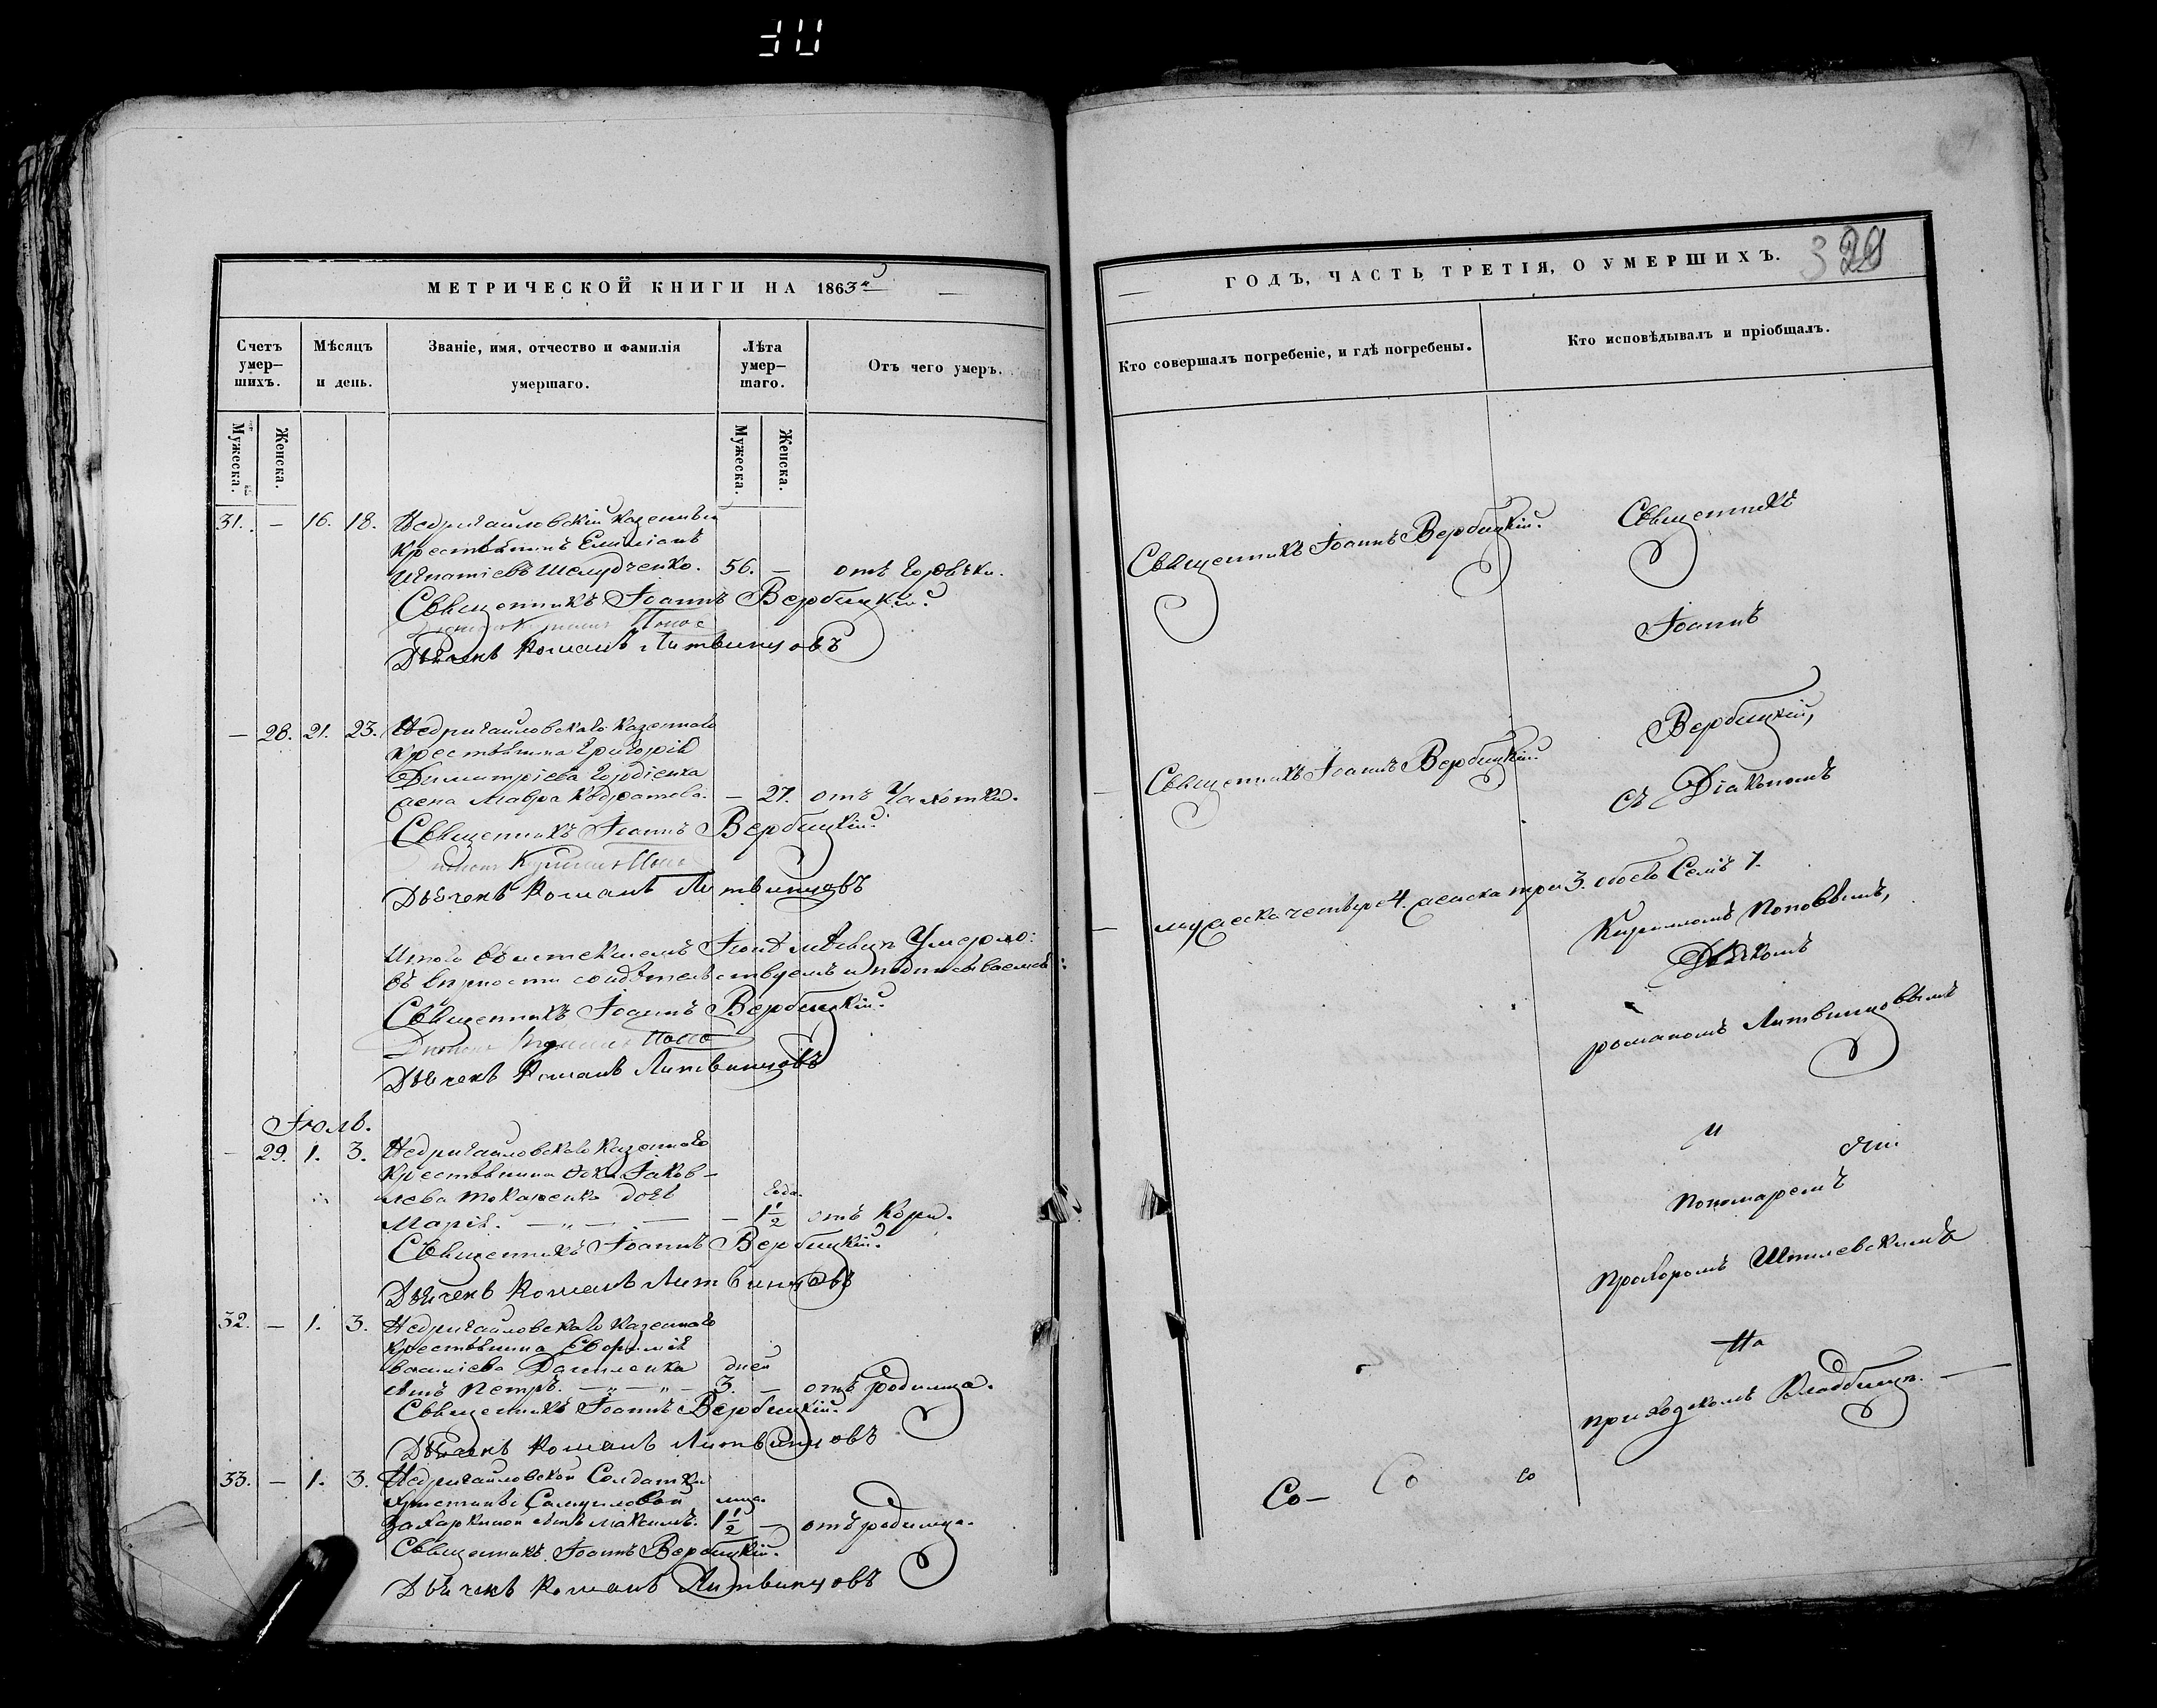 МЕТРИЧЕСКОЙ КНИГИ НА 1863й
Счетъ умер-шихъ.
Мѣсяцъ и день.
Званіе, имя, отчество и фамилія умершаго.
Лѣта умер-шаго.
Отъ чего умеръ.
Мужеска.
Женска.
Мужеска.
Женска.
31. — 16. 18. Недригайловскій казенный
крестьянинъ Емиліанъ
Игнатіевъ Шелудченко. 56. — отъ горячки.
Священникъ Іоаннъ Вербицкій.
Дьячекъ Романъ Литвинцовъ
— 28. 21. 23. Недригайловскаго казеннаго
крестьянина Григорія
Димитріева Гордіенка
жена Мавра Кодратова. — 27. отъ чахотки.
Священникъ Іоаннъ Вербицкій.
Дьячекъ Романъ Литвинцовъ
Итого въ истекшемъ Іюнѣ мѣсяцѣ умерло:
въ вѣрности свидѣтельствуемъ и подписываемся:
Священникъ Іоаннъ Вербицкій.
Дьячекъ Романъ Литвинцовъ
Іюль.
— 29. 1. 3. Недригайловскаго казеннаго
крестьянина Іаков-
лева Токаренка дочь года.
Марія. — „ — — — 1 1/2 отъ кори.
Священникъ Іоаннъ Вербицкій.
Дьячекъ Романъ Литвинцовъ
32. — 1. 3. Недригайловскаго казеннаго
крестьянина Евфимія
Василіева Даниленка дней
сынъ Петръ. — „ — „ — 3. — отъ родимца.
Священникъ Іоаннъ Вербицкій.
Дьячекъ Романъ Литвинцовъ
33. — 1. 3. Недригайловской Солдатки
Христины Самуиловой мца.
Захаркиной сынъ Максимъ. 1 1/2 — отъ родимца.
Священникъ Іоаннъ Вербицкій.
Дьячекъ Романъ Литвинцовъ
ГОДЪ, ЧАСТЬ ТРЕТІЯ, О УМЕРШИХЪ.
Кто совершалъ погребеніе, и гдѣ погребены.
Кто исповѣдывалъ и пріобщалъ.
Священникъ Іоаннъ Вербицкій.
Священникъ
Іоаннъ
Вербицкій,
Священникъ Іоаннъ Вербицкій.
съ Діакономъ
мужеска четыре 4. женска три 3. обоего Семь 7.
Кириломъ Поповымъ,
Дьячкомъ
Романомъ Литвинцовымъ
и
Пономаремъ
Прохоромъ Шпилевскимъ
На
приходскомъ Кладбищѣ. —
Со— Со со